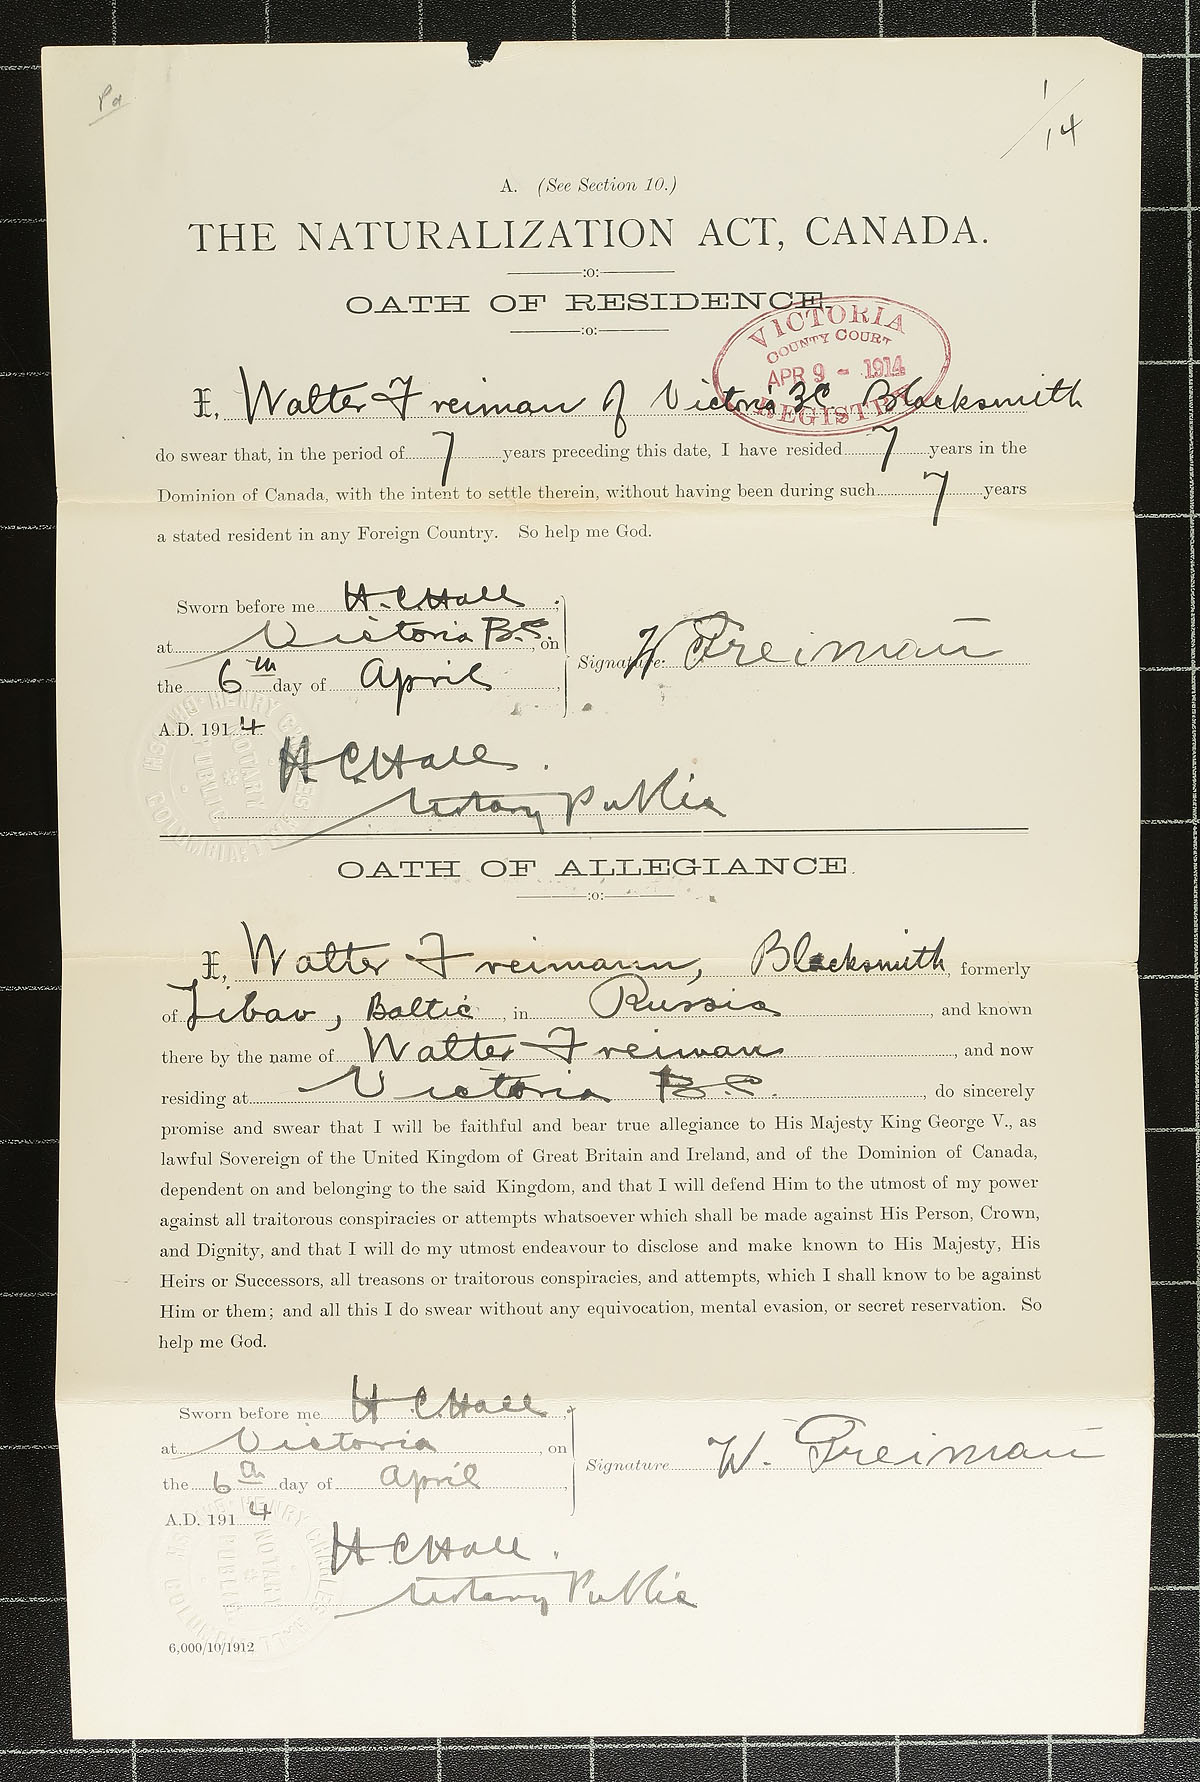 Pd
1/14
A. (See Section 10.)
THE NATURALIZATION ACT, CANADA.
:o:
OATH OF RESIDENCE.
:o:
VICTORIA
COUNTY COURT
APR 9 - 1914
REGISTRY
I, Walter Freiman of Victoria BC Blacksmith
do swear that, in the period of 7 years preceding this date, I have resided 7 years in the
Dominion of Canada, with the intent to settle therein, without having been during such 7 years
a stated resident in any Foreign Country. So help me God.
Sworn before me H. C Hall
at Victoria B.C., on
the 6th day of April,
A.D. 1914
Signature: W Freimann
H C Hall.
Notary Public
OATH OF ALLEGIANCE.
:o:
I, Walter Freimann, Blacksmith, formerly
of Libau, Baltic, in Russia, and known
there by the name of Walter Freiman, and now
residing at Victoria B.C., do sincerely
promise and swear that I will be faithful and bear true allegiance to His Majesty King George V., as
lawful Sovereign of the United Kingdom of Great Britain and Ireland, and of the Dominion of Canada,
dependent on and belonging to the said Kingdom, and that I will defend Him to the utmost of my power
against all traitorous conspiracies or attempts whatsoever which shall be made against His Person, Crown,
and Dignity, and that I will do my utmost endeavour to disclose and make known to His Majesty, His
Heirs or Successors, all treasons or traitorous conspiracies, and attempts, which I shall know to be against
Him or them; and all this I do swear without any equivocation, mental evasion, or secret reservation. So
help me God.
Sworn before me H C Hall
at Victoria, on
the 6th day of April,
A.D. 1914
Signature W. Freimann
H C Hall.
Notary Public
HENRY CHARLES HALL
NOTARY
PUBLIC
6,000/10/1912